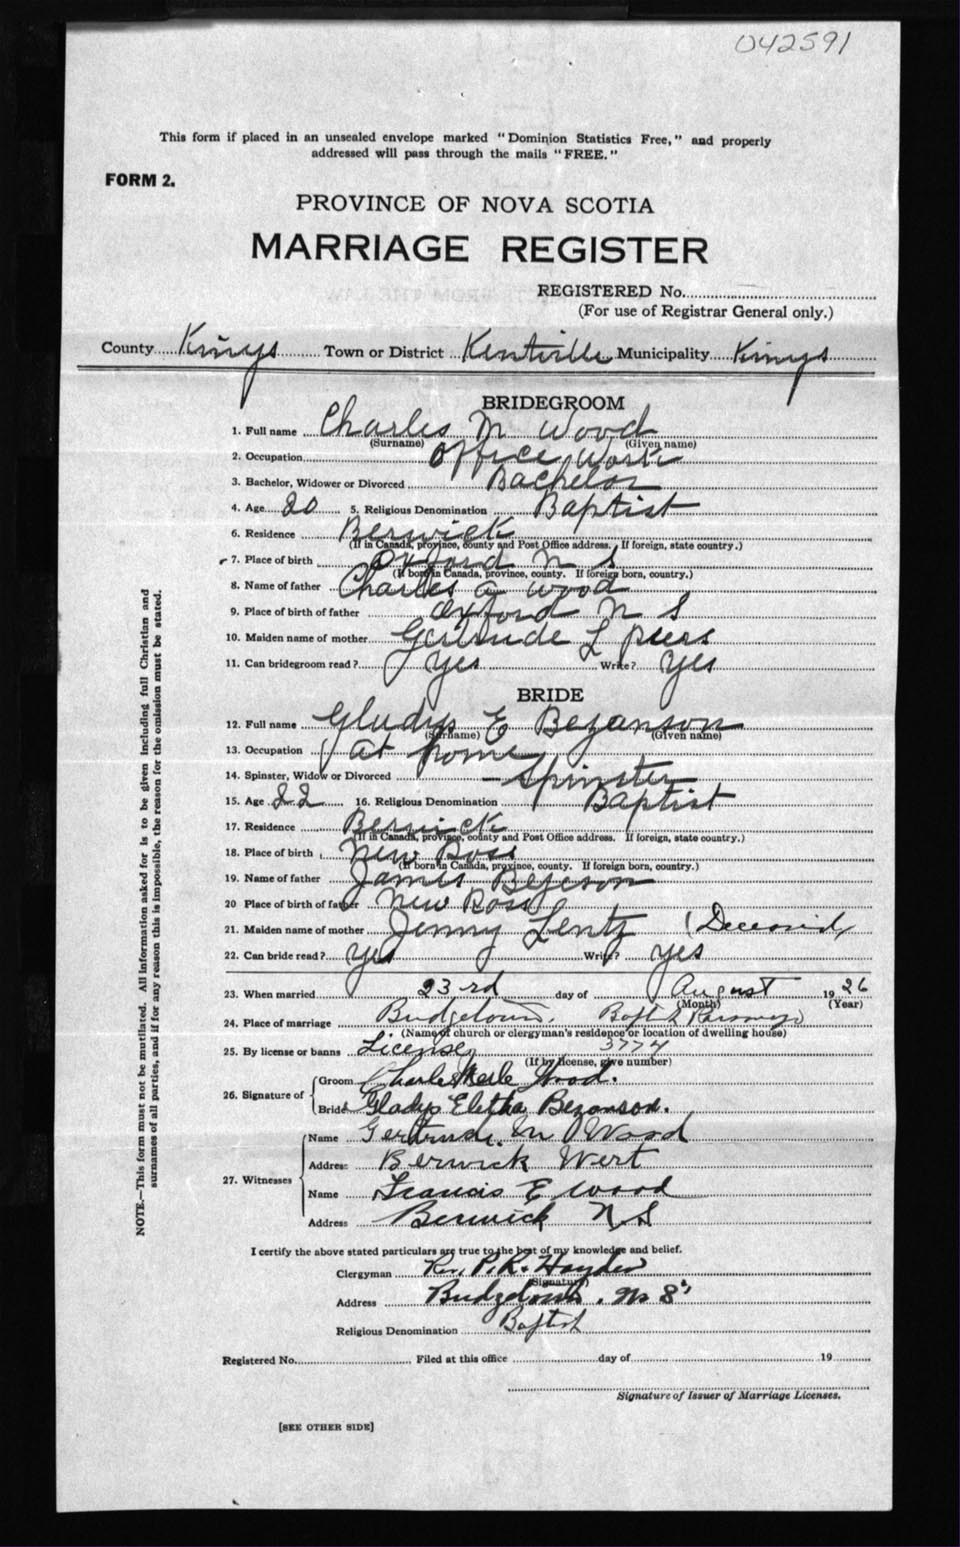 042591
This form if placed in an unsealed envelope marked "Dominion Statistics Free," and properly
addressed will pass through the mails "FREE."
FORM 2.
PROVINCE OF NOVA SCOTIA
MARRIAGE REGISTER
REGISTERED No.
(For use of Registrar General only.)
County Kings Town or District Kentville Municipality Kings
BRIDEGROOM
1. Full name Charles M Wood
(Surname) (Given name)
2. Occupation Office Work
3. Bachelor, Widower or Divorced Bachelor
4. Age 20 5. Religious Denomination Baptist
6. Residence Berwick
(If in Canada, province, county and Post Office address. If foreign, state country.)
7. Place of birth Oxford N S
(If born in Canada, province, county. If foreign born, country.)
8. Name of father Charles A Wood
9. Place of birth of father Oxford N S
10. Maiden name of mother Gertrude L Piers
11. Can bridegroom read? yes Write? yes
BRIDE
12. Full name Gladys E Bezanson
(Surname) (Given name)
13. Occupation at home
14. Spinster, Widow or Divorced Spinster
15. Age 22 16. Religious Denomination Baptist
17. Residence Berwick
(If in Canada, province, county and Post Office address. If foreign, state country.)
18. Place of birth New Ross
(If born in Canada, province, county. If foreign born, country.)
19. Name of father James Bezeson
20 Place of birth of father New Ross
21. Maiden name of mother Jenny Lentz (Deceased)
22. Can bride read? yes Write? yes
23. When married 23rd day of August 1926
(Month) (Year)
24. Place of marriage Bridgetown, Baptist Parsonage
(Name of church or clergyman's residence or location of dwelling house)
25. By license or banns License 3774
(If by license, give number)
26. Signature of Groom Charles Merle Wood.
Bride Gladys Eletha Bezanson.
27. Witnesses
Name Gertrude M Wood
Address Berwick West
Name Francis E Wood
Address Berwick N S
I certify the above stated particulars are true to the best of my knowledge and belief.
Clergyman Rev. P. R. Hayden
(Signature)
Address Bridgetown, N S
Religious Denomination Baptist
Registered No. Filed at this office day of 19
Signature of Issuer of Marriage Licenses.
[SEE OTHER SIDE]
NOTE.—This form must not be mutilated. All information asked for is to be given including full Christian and
surnames of all parties, and if for any reason this is impossible, the reason for the omission must be stated.